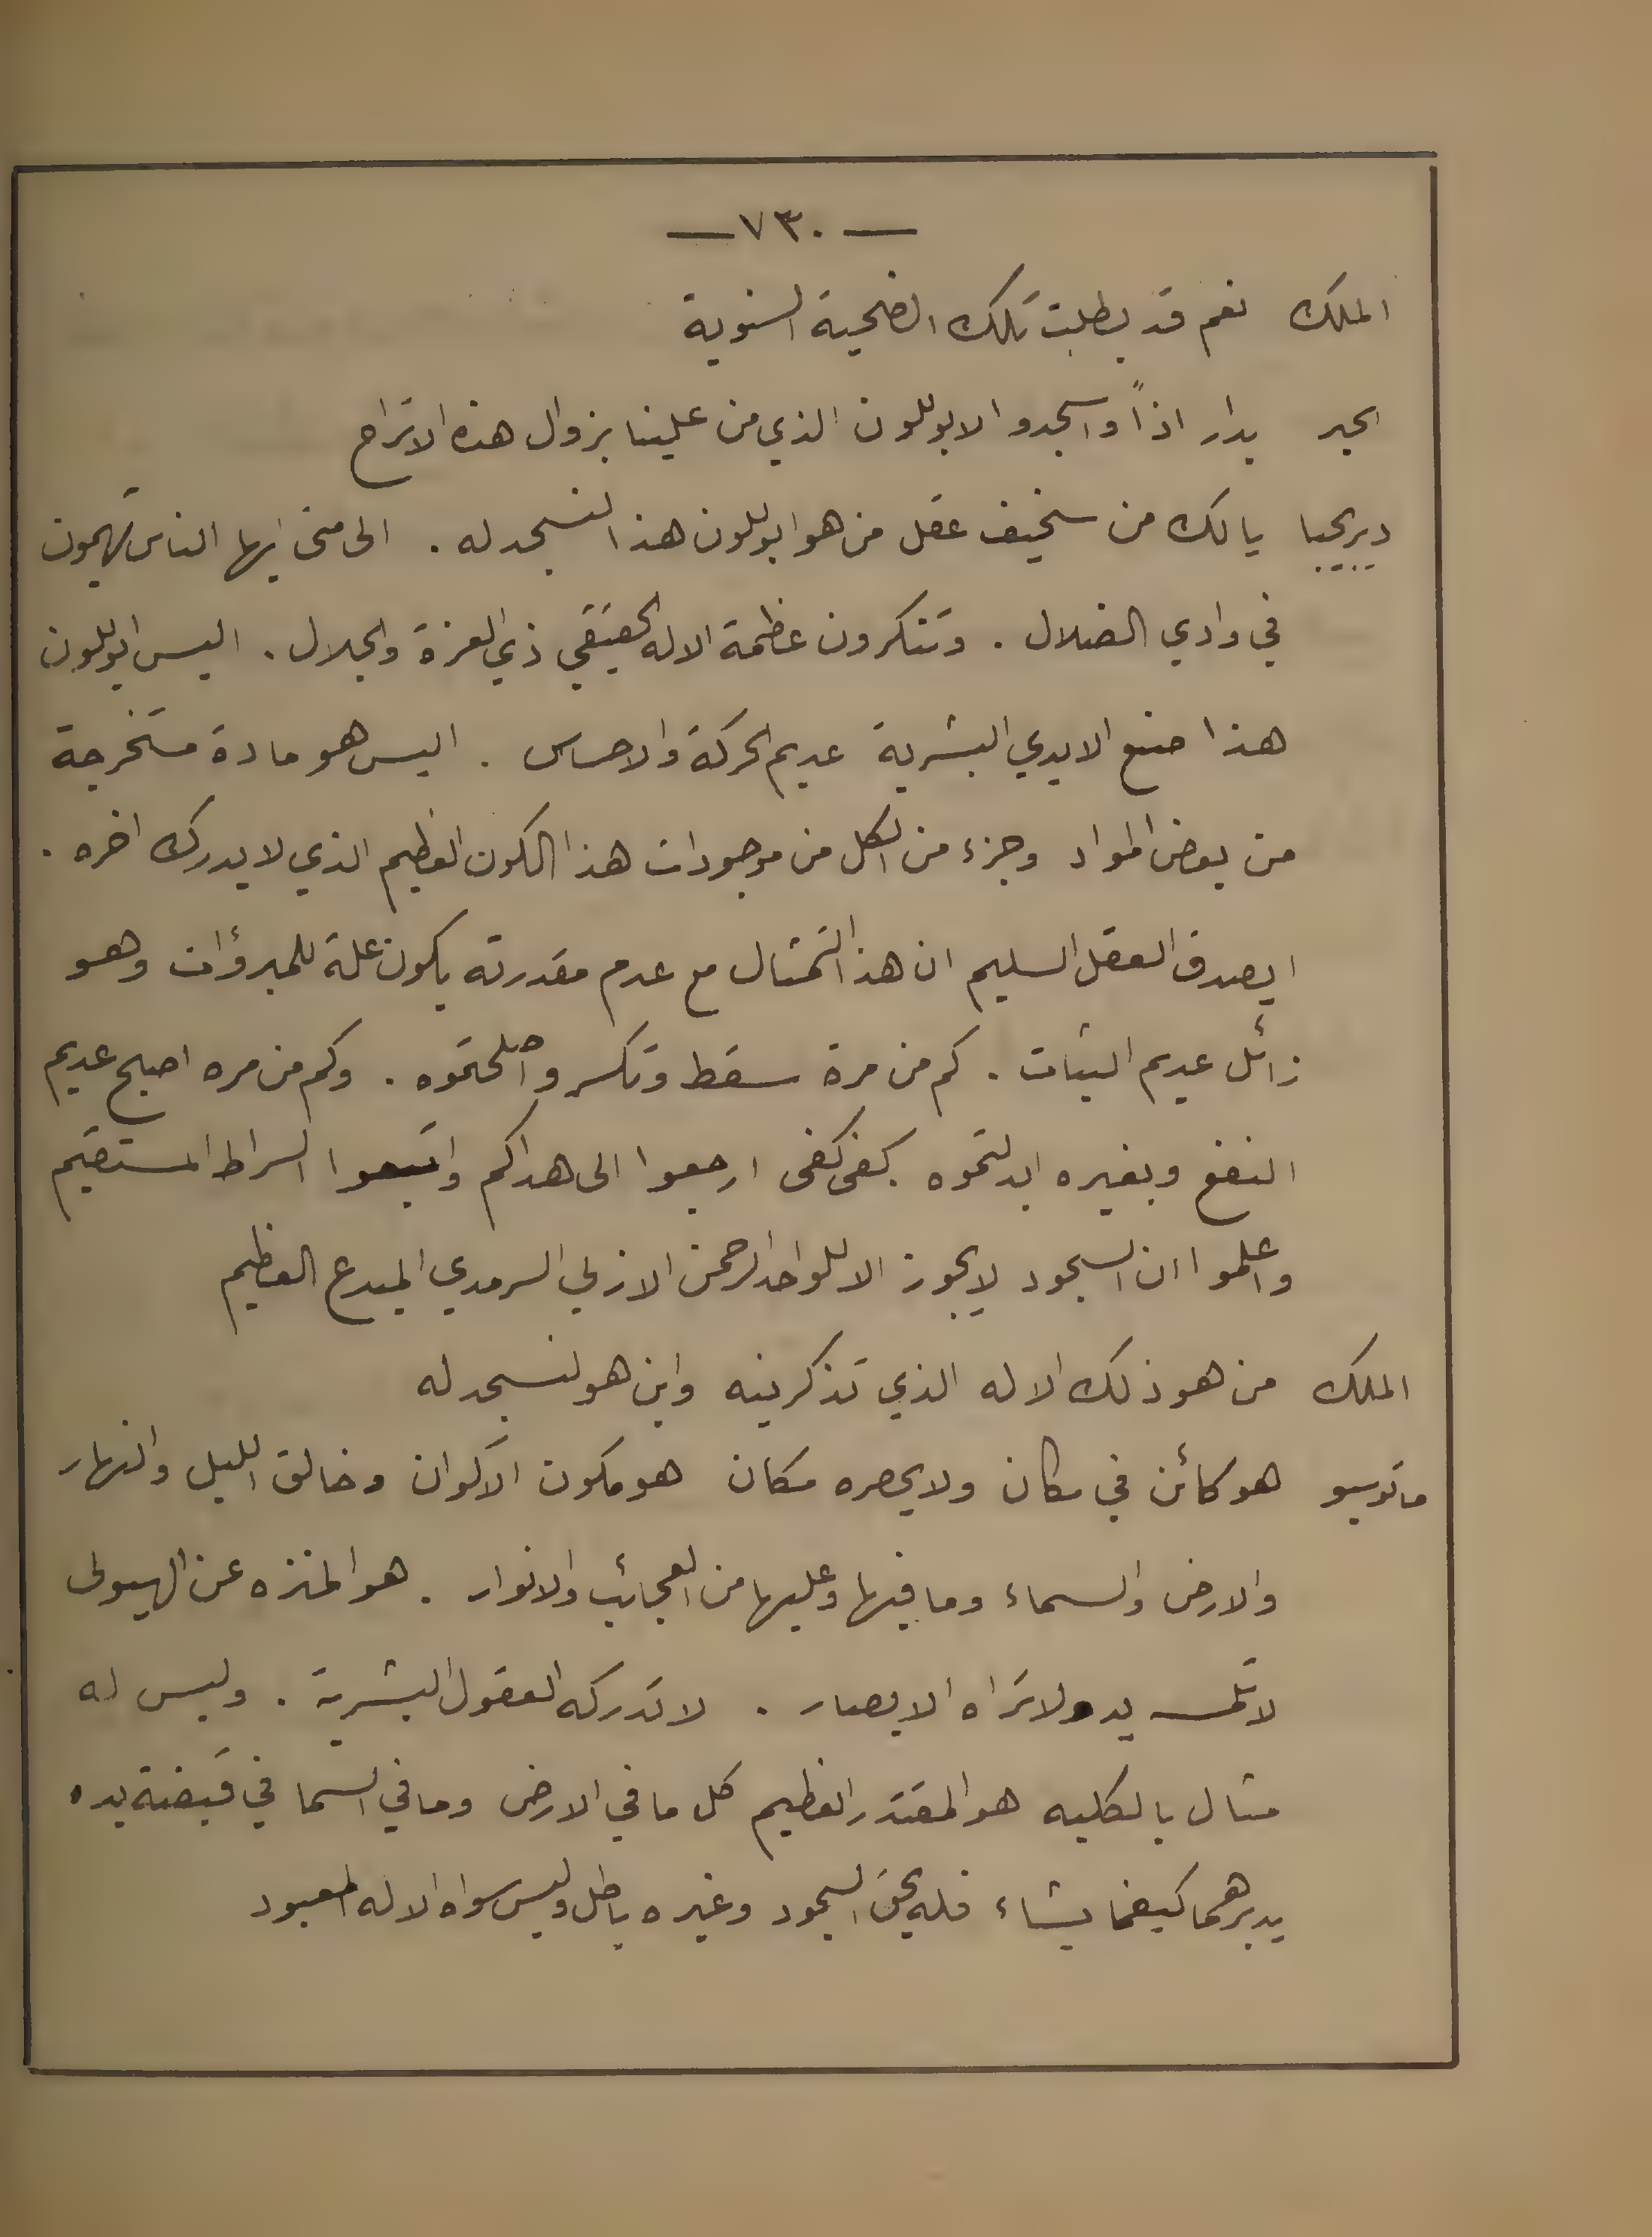 — ٧٣٠ —
الملك نعم قد بطلت تلك الضحية السنوية
الحبر بدار اذاً واسجدو الابوللون الذي من علينا بزوال هذه الاتراح
ديريحيا يا لك من سخيف عقل من هو ابوللون هذا لنسجد له . الى متى ايها الناس تهيمون
في وادي الضلال . وتنكرون عظمة الاله الحقيقي ذي العزة والجلال . اليس ابوللون
هذا صنع الايدي البشرية عديم الحركة والاحساس . اليس هو مادة مستخرجة
من بعض المواد وجزء من الكل من موجودات هذا الكون العظيم الذي لا يدرك اخره .
ايصدق العقل السليم ان هذا التمثال مع عدم مقدرته يكون علة للمبروٴات وهو
زائل عديم الثبات . كم من مرة سقط وتكسر واصلحتموه . وكم من مره اصبح عديم
النفع وبغيره ابدلتموه . كفى كفى ارجعوا الى هداكم واتبعوا السراط المستقيم
واعلموا ان السجود لا يجوز الا للواحد الرحمن الازلي السرمدي المبدع العظيم
الملك من هو ذلك الاله الذي تذكرينه واين هو لنسجد له
ماتوسيو هو كائن في مكان ولا يحصره مكان هو مكون الاكوان وخالق الليل والنهار
والارض والسماء وما فيها وعليها من العجائب والانوار . هو المنزه عن الهيولى
لا تلمسه يد ولا تراه الابصار . لا تدركه العقول البشرية . وليس له
مثال بالكليه هو المقتدر العظيم كل ما في الارض وما في السما في قبضة يده
يدبرهما كيفما يشاء فله يحق السجود وغيره باطل وليس سواه الاله المعبود